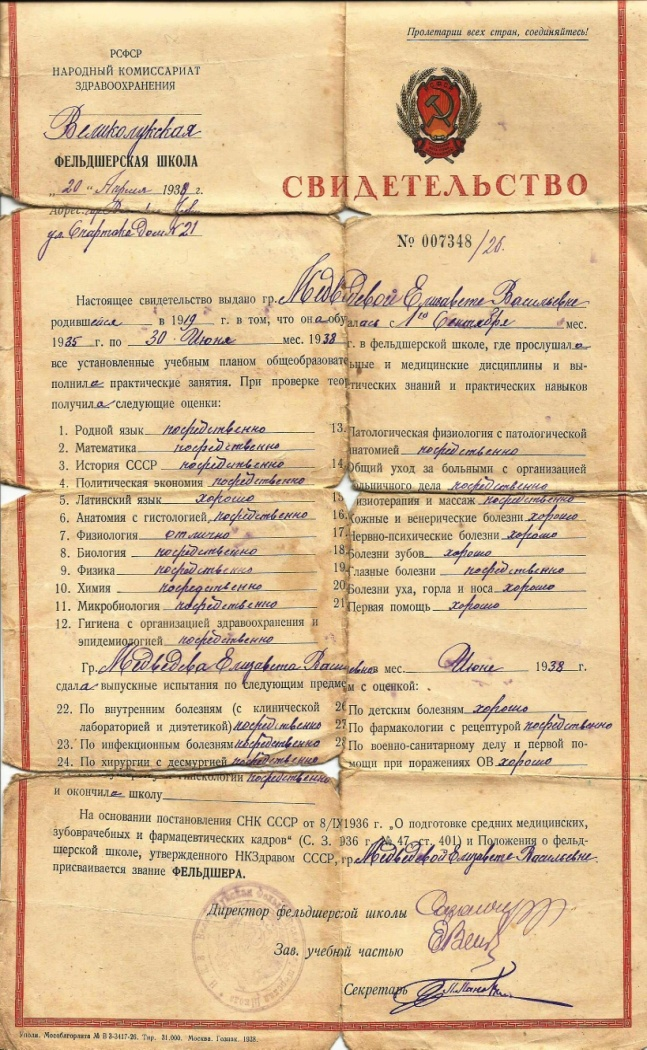 Пролетарии всех стран, соединяйтесь!
РСФСР
НАРОДНЫЙ КОМИССАРИАТ
ЗДРАВООХРАНЕНИЯ
Великолукская
ФЕЛЬДШЕРСКАЯ ШКОЛА
СВИДЕТЕЛЬСТВО
„20" Апреля 1938 г.
Адрес: гор.
ул. Спартака Дом № 21
№ 007348/26.
Настоящее свидетельство выдано гр. Медведевой Елизавете Васильевне
родившейся в 1919 г. в том, что она обучалась с 1го Сентября мес.
1935 г. по 30 Июня мес. 1938 г. в фельдшерской школе, где прослушала
все установленные учебным планом общеобразовательные и медицинские дисциплины и вы-
полнила практические занятия. При проверке теоретических знаний и практических навыков
получила следующие оценки:
1. Родной язык посредственно
2. Математика посредственно
3. История СССР посредственно
4. Политическая экономия посредственно
5. Латинский язык хорошо
6. Анатомия с гистологией посредственно
7. Физиология отлично
8. Биология посредственно
9. Физика посредственно
10. Химия посредственно
11. Микробиология посредственно
12. Гигиена с организацией здравоохранения и
эпидемиологией посредственно
13. Патологическая физиология с патологической
анатомией посредственно
14. Общий уход за больными с организацией
больничного дела посредственно
15. Физиотерапия и массаж посредственно
16. Кожные и венерические болезни хорошо
17. Нервно-психические болезни хорошо
18. Болезни зубов хорошо
19. Глазные болезни посредственно
20. Болезни уха, горла и носа хорошо
21. Первая помощь хорошо
Гр. Медведева Елизавета Васильевна в мес. Июне 1938 г.
сдала выпускные испытания по следующим предметам с оценкой:
22. По внутренним болезням (с клинической
лабораторией и диэтетикой) посредственно
23. По инфекционным болезням посредственно
24. По хирургии с десмургией посредственно
гинекологии посредственно
26. По детским болезням хорошо
27. По фармакологии с рецептурой посредственно
28. По военно-санитарному делу и первой по-
мощи при поражениях ОВ хорошо
и окончила школу
На основании постановления СНК СССР от 8/IX 1936 г. „О подготовке средних медицинских,
зубоврачебных и фармацевтических кадров" (С. З. 1936 г. № 47, ст. 401) и Положения о фельд-
шерской школе, утвержденного НКЗдравом СССР, гр. Медведевой Елизавете Васильевне
присваивается звание ФЕЛЬДШЕРА.
Директор фельдшерской школы
Зав. учебной частью
Секретарь
Уполн. Мособлгорлита № В 3-3417-26. Тир. 31.000. Москва. Гознак. 1938.